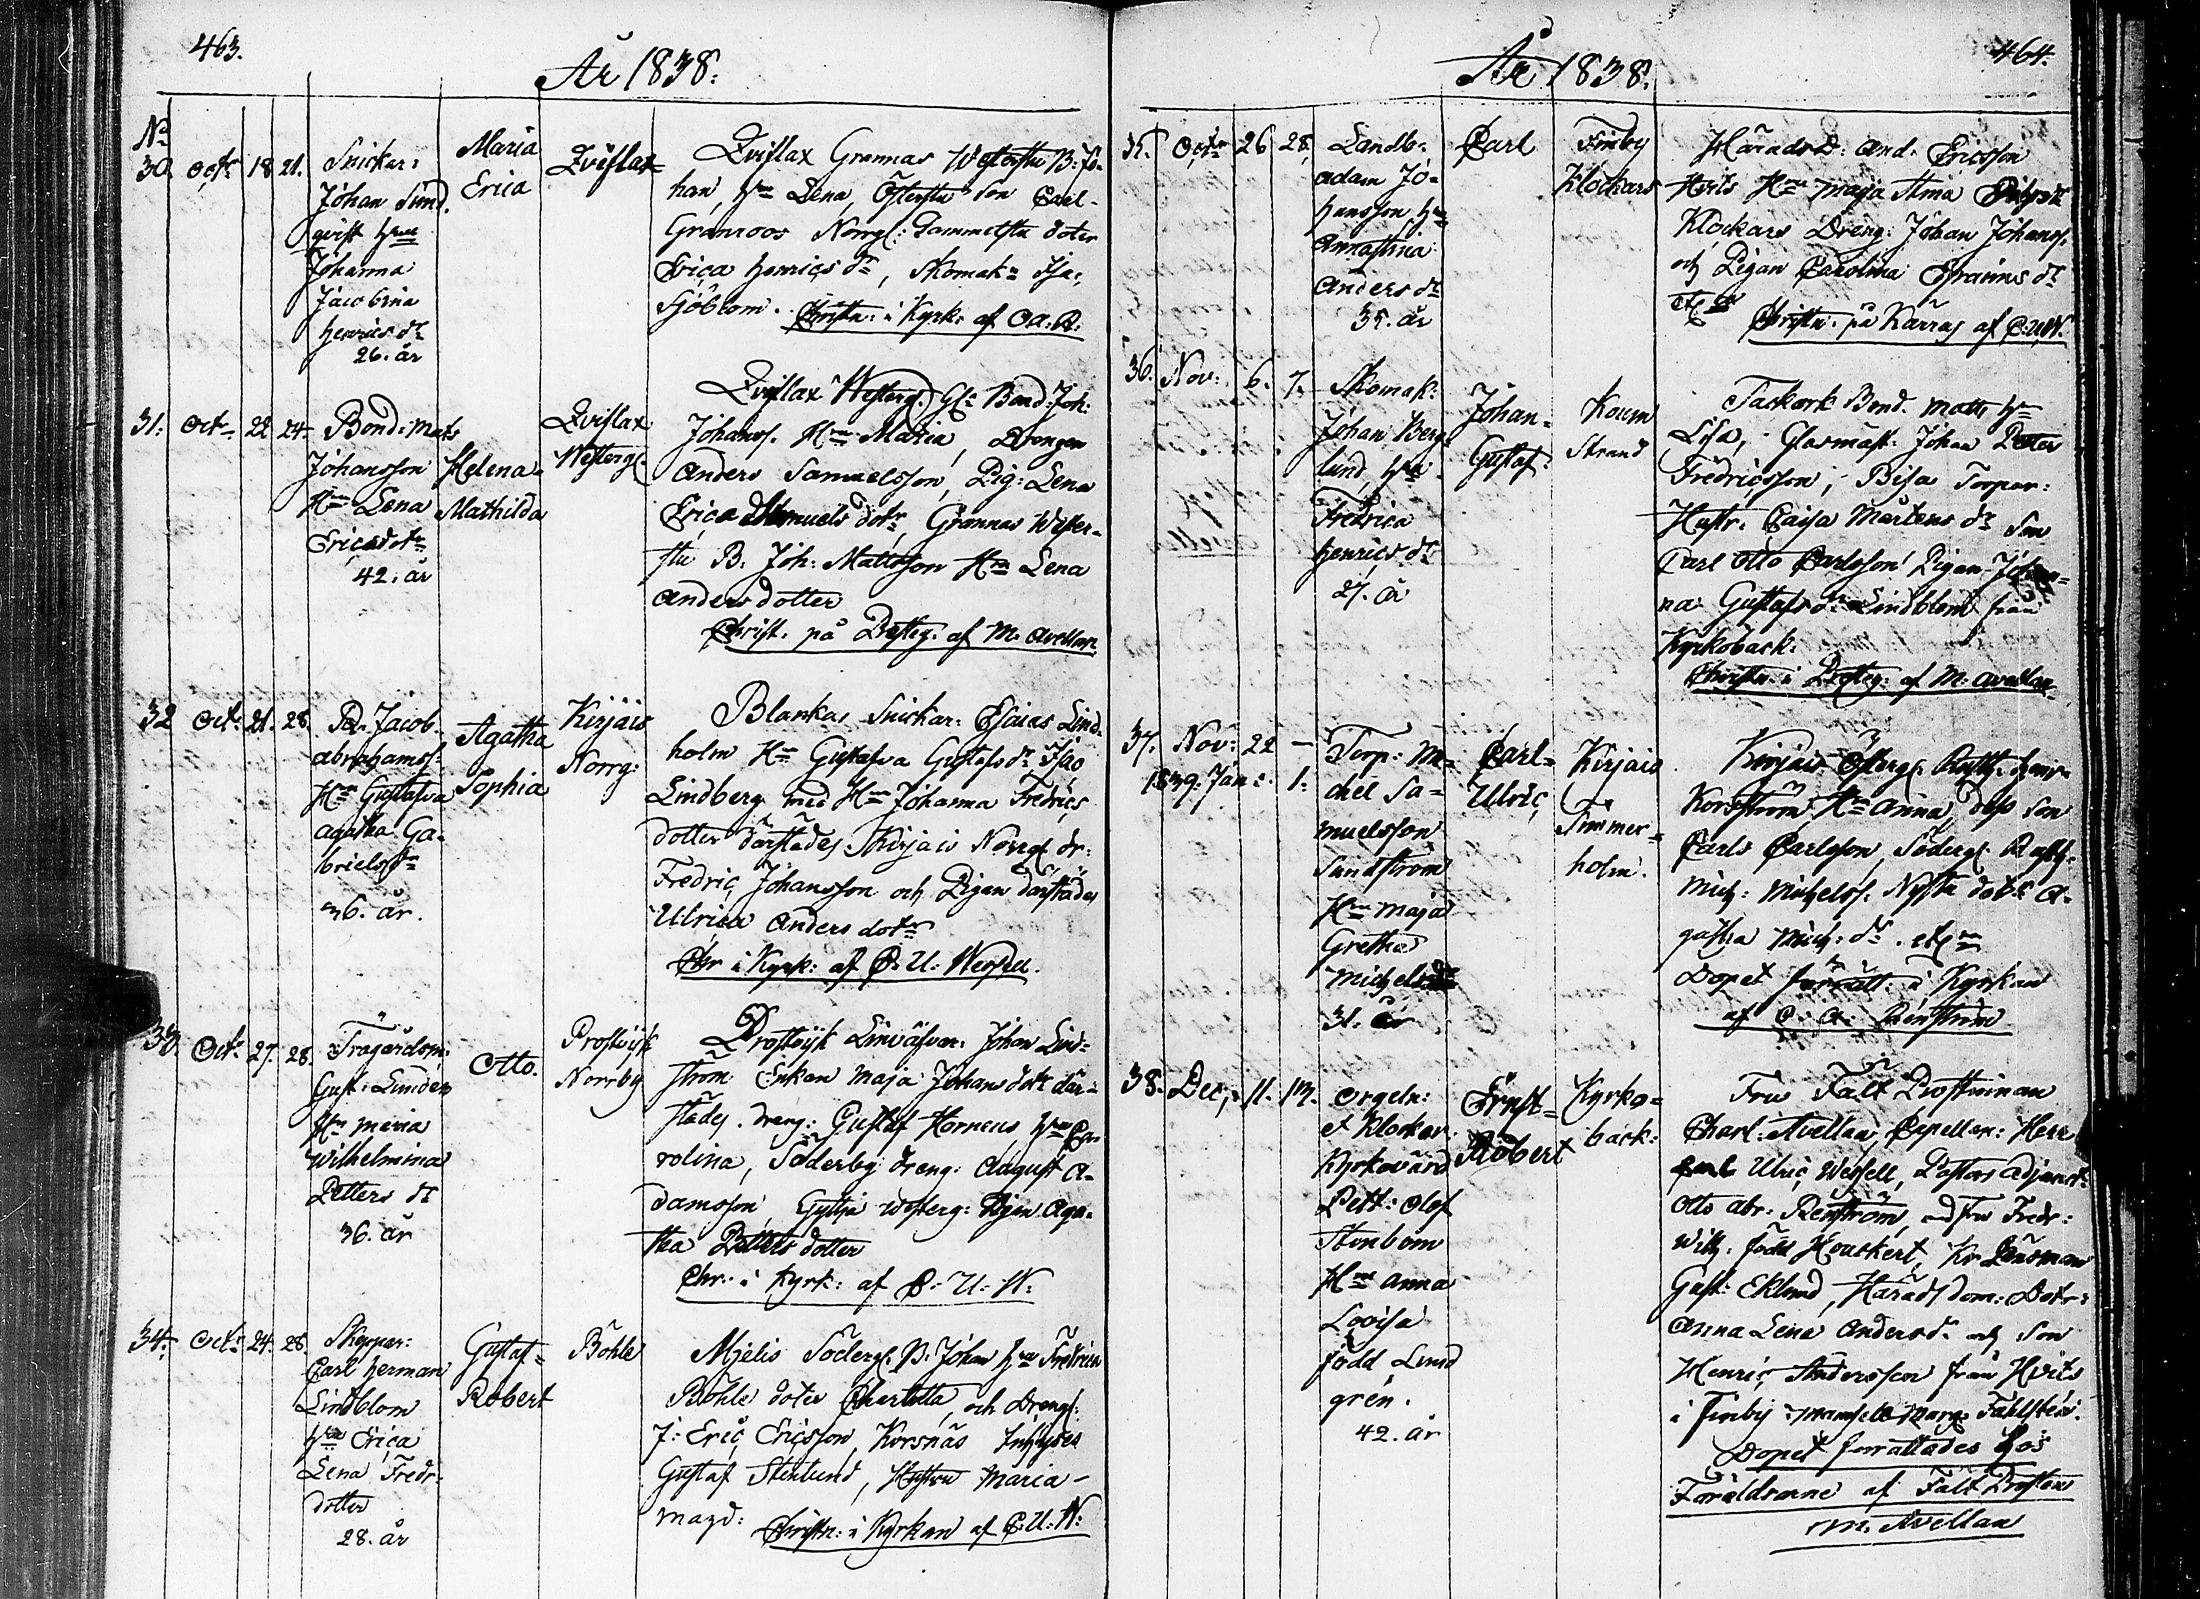 463.
År 1838.
No
30. Octr 18 21.
Snickar:
Johan Sund.
qvist Hru
Johanna
Jacobina
Henricsdr
26. år
Maria
Erica
Qvislax
Qvislax Grannas Westerstu B: Jo-
han, Hru Lena, Österstu Son Carl
Granroos Norrg: Gammelstu doter
Erica Henricsdr, Skomakr Isac
Sjöblom. Christn: i Kyrk: af O.A.R.
31. Octr 22 24.
Bond: Mats
Johansson
Hru Lena
Ericsdotr
42. år
Helena
Mathilda
Qvislax
Westerg:
Qvislax Westerg: Gla Bond: Joh:
Johanss. Hru Maria, Drengen
Anders Samuelsson, Pig: Lena
Erica Samuels dotr, Grannas Wester-
stu B. Joh: Mattsson Hru Lena
Anders dotter
Christ. på Prosteg. af M. Avellan
32 Octr 21. 28.
B. Jacob
Abrahamss:
Hru Gustafva
Agatha Ga-
brielsdr
36. år.
Agatha
Sophia
Kirjais
Norrg:
Blankas Snickar: Esaias Lind-
holm Hru Gustafva Gustafsdr Isac
Lindberg med Hru Johanna Fredrics
dotter därstädes Kirjais Norrg dr:
Fredric Johansson och Pigan därstädes
Ulrica Anders dotr
Chr i Kyrk: af C: U: Wessell.
33. Octr 27. 28.
Trägårdsm:
Gust: Lindén
Hru Maria
Wilhelmina
Petters dr
36. år
Otto.
Prostvik
Norrby
Prostvik Linväfvar: Johan Lind-
ström Enkan Maja Johans dotr där-
städes. dreng: Gustaf Horneus, Hru Ca-
rolina, Söderby dreng: August A-
damsson, Gyttja Westerg: Pigan Aga-
tha Petters dotter
Chr: i Kyrk: af C: U: W:
34. Octr 24. 28.
Skeppar:
Carl Herman
Lindblom
Hru Erica
Lena Fredr:
dotter
28. år
Gustaf
Robert
Böhle
Mjelis Söderg: B. Johan Hru Fredrica
Böhle doter Charlotta och Drengs:
J: Eric Ericsson, Korsnäs Inhyses
Gustaf Stenlund, Hustru Maria
Magd: Christn: i Kyrkan af C: U: W:
464.
År 1838.
35. Octr 26 28.
Landb:
Adam Jo-
hansson Hru
Annastina
Anders dr
35. år
Carl
Finby
Klockars
Häradsd: And: Ericsson
Hvits Hru Maja Stina
Klockars Dreng: Johan Johanss.
och Pigan Carolina Efraims dr
Christn: på Kärras af C:U:W.
36. Nov: 6. 7.
Skomak:
Johan Berg-
lund, Hru
Fredrica
Henrics dr
27. år
Johan
Gustaf
Koum
Strand
Tackork Bond. Matts Hru
Lisa, Glasmäst: Johan Petter
Fredricsson, Bisa Torpar:
Hustr. Caisa Mårtens dr Son
Carl Otto Carlsson Pigan Johan-
na Gustafs dr Lindblom från
Kyrkoback:
Christn: i Prosteg: af M: Avellan
37. Nov: 22 –
1839. Jan: 1.
Torp: Mi-
chel Sa-
muelsson
Sundström
Hru Maja
Gretha
Michelsdr
31. år
Carl
Ulric
Kirjais
Simmer-
holm.
Kirjais Österg: Rusth: Henr:
Korsström, Hru Anna, dess Son
Carls Carlsson, Söderg: Rusth:
Mich: Michelss. Nystu dotr A-
gatha Mich: dr. etc
Dopet förrätt: i Kyrkan
af O: A: Renström
38. Dec: 11. 13.
Orgeln:
& Klockar
Kyrkovärd
Pett: Olof
Stenbom
Hru Anna
Lovisa
född Lind
gren.
42. år
Ernst
Robert
Kyrko-
back:
Fru Fält Prostinnan
Charl: Avellan, Capellan: Herr
Carl Ulric Wessell, Pastors Adjunct:
Otto Abr: Renström, med Fru Fredr:
Wilh: född Houckert, Kr Länsman
Gust: Eklund, Härads Dom: Dotr:
Anna Lena Andersdr och Son
Henric Andersson från Hvits
i Finby, Mams:ll Marg: Fahlstén.
Dopet förrättades hos
Föräldrarne af Fält Prosten
M. Avellan